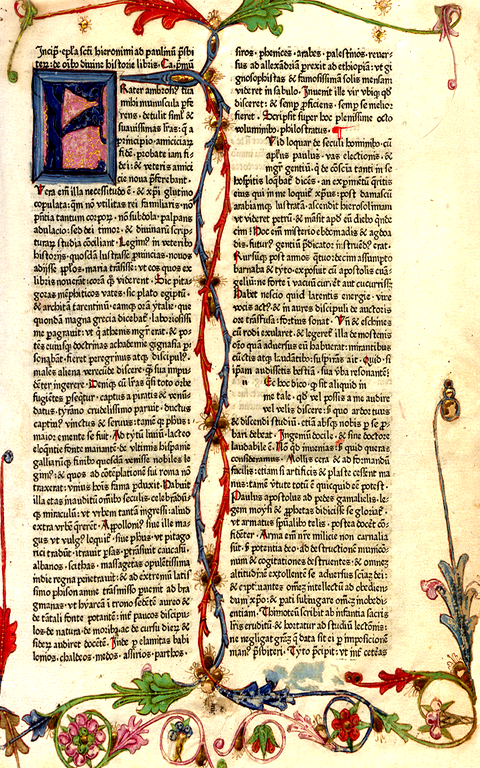 Incipit epl'a sancti iheronimi ad paulinū p̄sbi
terū: de oībꝫ divine historie libris. Ca. p̄mū
Frater ambrosi⁹ tua
michi munuscula pfe
rens. detulit simul et
suavissimas lr̄as: q̄ a
principio amiciciarū
fidē probate iam fi
dei: et veteris amici
cie nova preferebant.
Vera em̄ illa necessitudo ē · et xp̄i glutino
copulata: qm̄ nō utilitas rei familiaris · nō
p̄ntia tantum corporꝫ · nō subdola et palpans
adulacio: sed dei timor · et divinarū scrip
turarꝫ studia cōciliant. Legim⁹ in veteribꝫ
historijs · quosdā lustrasse provincias · novos
adijsse pplos · maria trāsisse: ut eos quos ex
libris noverāt: corā q̄ꝫ viderent. Sic pita-
goras mēphiticos vates · sic plato egiptū ·
et architā tarentinū · eamqꝫ orā ytalie · que
quondā magna grecia dicebat · laboriosissi
me peragravit: ut qui athenis mgr̄ erat et po
tens · cuiusqꝫ doctrinas achademie gignasia p̄
sonabāt · fieret peregrinus atqꝫ discipul⁹:
males aliena verecunde discere · qꝫ sua impu
dēter ingerere. Deniqꝫ cū lr̄as q̄si toto orbe
fugiētes pseq̄tur · captus a piratis et venū
datus · tyrāno crudelissimo paruit · ductus
captiv⁹ vinct⁹ et servus: tamē qꝫ phus ·
maior emente se fuit. Ad tytū liviū · lacteo
eloquētie fonte manantē · de ultimis hispanie
galliarūqꝫ finibꝫ · quosdā venisse nobiles le
gim⁹: et quos ad cōtēplationē sui roma nō
traxerat: unius hoīs fama pduxit. Habuit
illa etas inauditū om̄ibꝫ seculis · celebrandūqꝫ
miraculū: ut urbem tantā ingressi · aliud
extra urbē q̄rerent. Appolloni⁹ sive ille ma-
gus ut vulg⁹ loquit · sive phus · ut pitago
rici tradūt · ītravit psas · ptrāsivit caucasū ·
albanos · scithas · massagetas · opulētissima
indie regna penetravit: et ad extremū latis
simo phison amne trāsmisso puenit ad bra
gmanas · ut hyarcā ī throno sedētē aureo et
de tātali fonte potantē · inter paucos discipu
los · de natura · de moribꝫ · ac de cursu dierꝫ et
siderꝫ audiret docētē. Inde p elamitas · babi
lonios · chaldeos · medos · assirios · parthos ·
siros · phenices · arabes · palestinos · rever-
sus ad allexādriā · prexit ad ethiopiā: ut gi
gnosophistas et famosissimā solis mensam
videret in sabulo. Invenit ille vir ubiqꝫ qd̄
disceret: et semp proficiens · semp se melior
fieret. Scripsit super hoc plenissime octo
voluminibꝫ · philostratus.
Quid loquar de seculi hominibꝫ: cū
apl'us paulus · vas electionis · et
mgr̄ gentiū · qui de cōsciā tanti in se
hospitis loq̄bat dicēs · an exp̄imētū q̄ritis
eius qui in me loquit xp̄us: post damascū
arabiāqꝫ lustratā · ascendit iherosolimam
ut videret petrū · et māsit apd̄ eū diebꝫ q̄nde
cim: Hoc em̄ misterio ebdomadis et ogdoa
dis · futur⁹ gentiū p̄dicator instruēd⁹ erat.
Rursūqꝫ post annos q̄tuordecim assumpto
barnaba et tyto · exposuit cū apostolis evā-
geliū: ne forte ī vacuū currēt aut cucurrisset.
Habet nescio quid latentis energie · vive
vocis act⁹: et in aures discipuli de auctoris
ore trāsfusa: fortius sonat. Unde et eschines
cū rodi exularet · et legeret illa demostenis
oratio quā adversus eū habuerat: mirantibꝫ
cunctis atqꝫ laudantibꝫ: suspirās ait. Quid si
ipsam audissetis bestiā · sua verba resonantē:
Nec hoc dico · qꝫ sit aliquid in
me tale · qd̄ vel possis a me audire
vel velis discere: sed quo ardor tuus
et discendi studiū · etiā absqꝫ nobis p se p
bari debeat. Ingeniū docile · et sine doctore
laudabile ē. Nō quid invenias: sed quid queras
consideramus. Mollis cera et ad formandū
facilis: etiam si artificis et plaste cessent ma
nus: tamē virtute totū ē quicquid eē potest.
Paulus apostolus ad pedes gamalielis · le
gem moysi et pphetas didicisse se gloriat ·
ut armatus spūalibꝫ telis · postea docēt cō
fidēter. Arma em̄ nr̄e milicie non carnalia
sūt · sed potentia deo · ad destructionē municio
num · et cogitationes destruentes · et omnē
altitudinē extollentē se adversus sciā dei:
et captivantes omnē intellectū ad obedien-
dum xp̄o: et pati subiugare omnē inobedi
entiam. Thimoteū scribit ab infantia sacris
lr̄is eruditū · et hortatur ad studiū lectionis:
ne negligat grām q̄ data sit ei p imposicionē
manꝫ p̄sbiteri. Tyto p̄cipit: ut inter ceteras